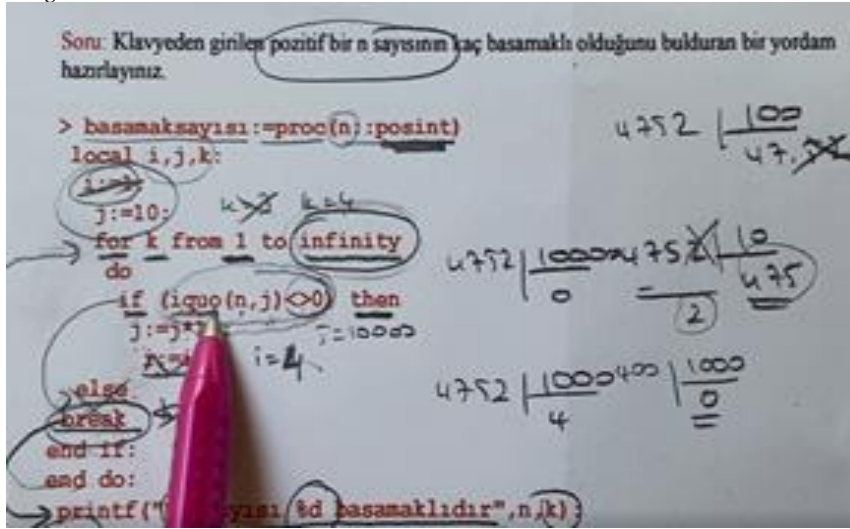 Soru: Klavyeden girilen pozitif bir n sayısının kaç basamaklı olduğunu bulduran bir yordam
hazırlayınız.
> basamaksayısı:=proc(n::posint)
local i,j,k:
j:=10:
for k from 1 to infinity
do
if (iquo(n,j)<>0) then
j:=j*
else
break
end if:
end do:
printf(" %d basamaklıdır",n,k):
k=4
i=4
4752 | 100
47.
4752 | 10
475
2
4752 | 1000
4
400 | 1000
0